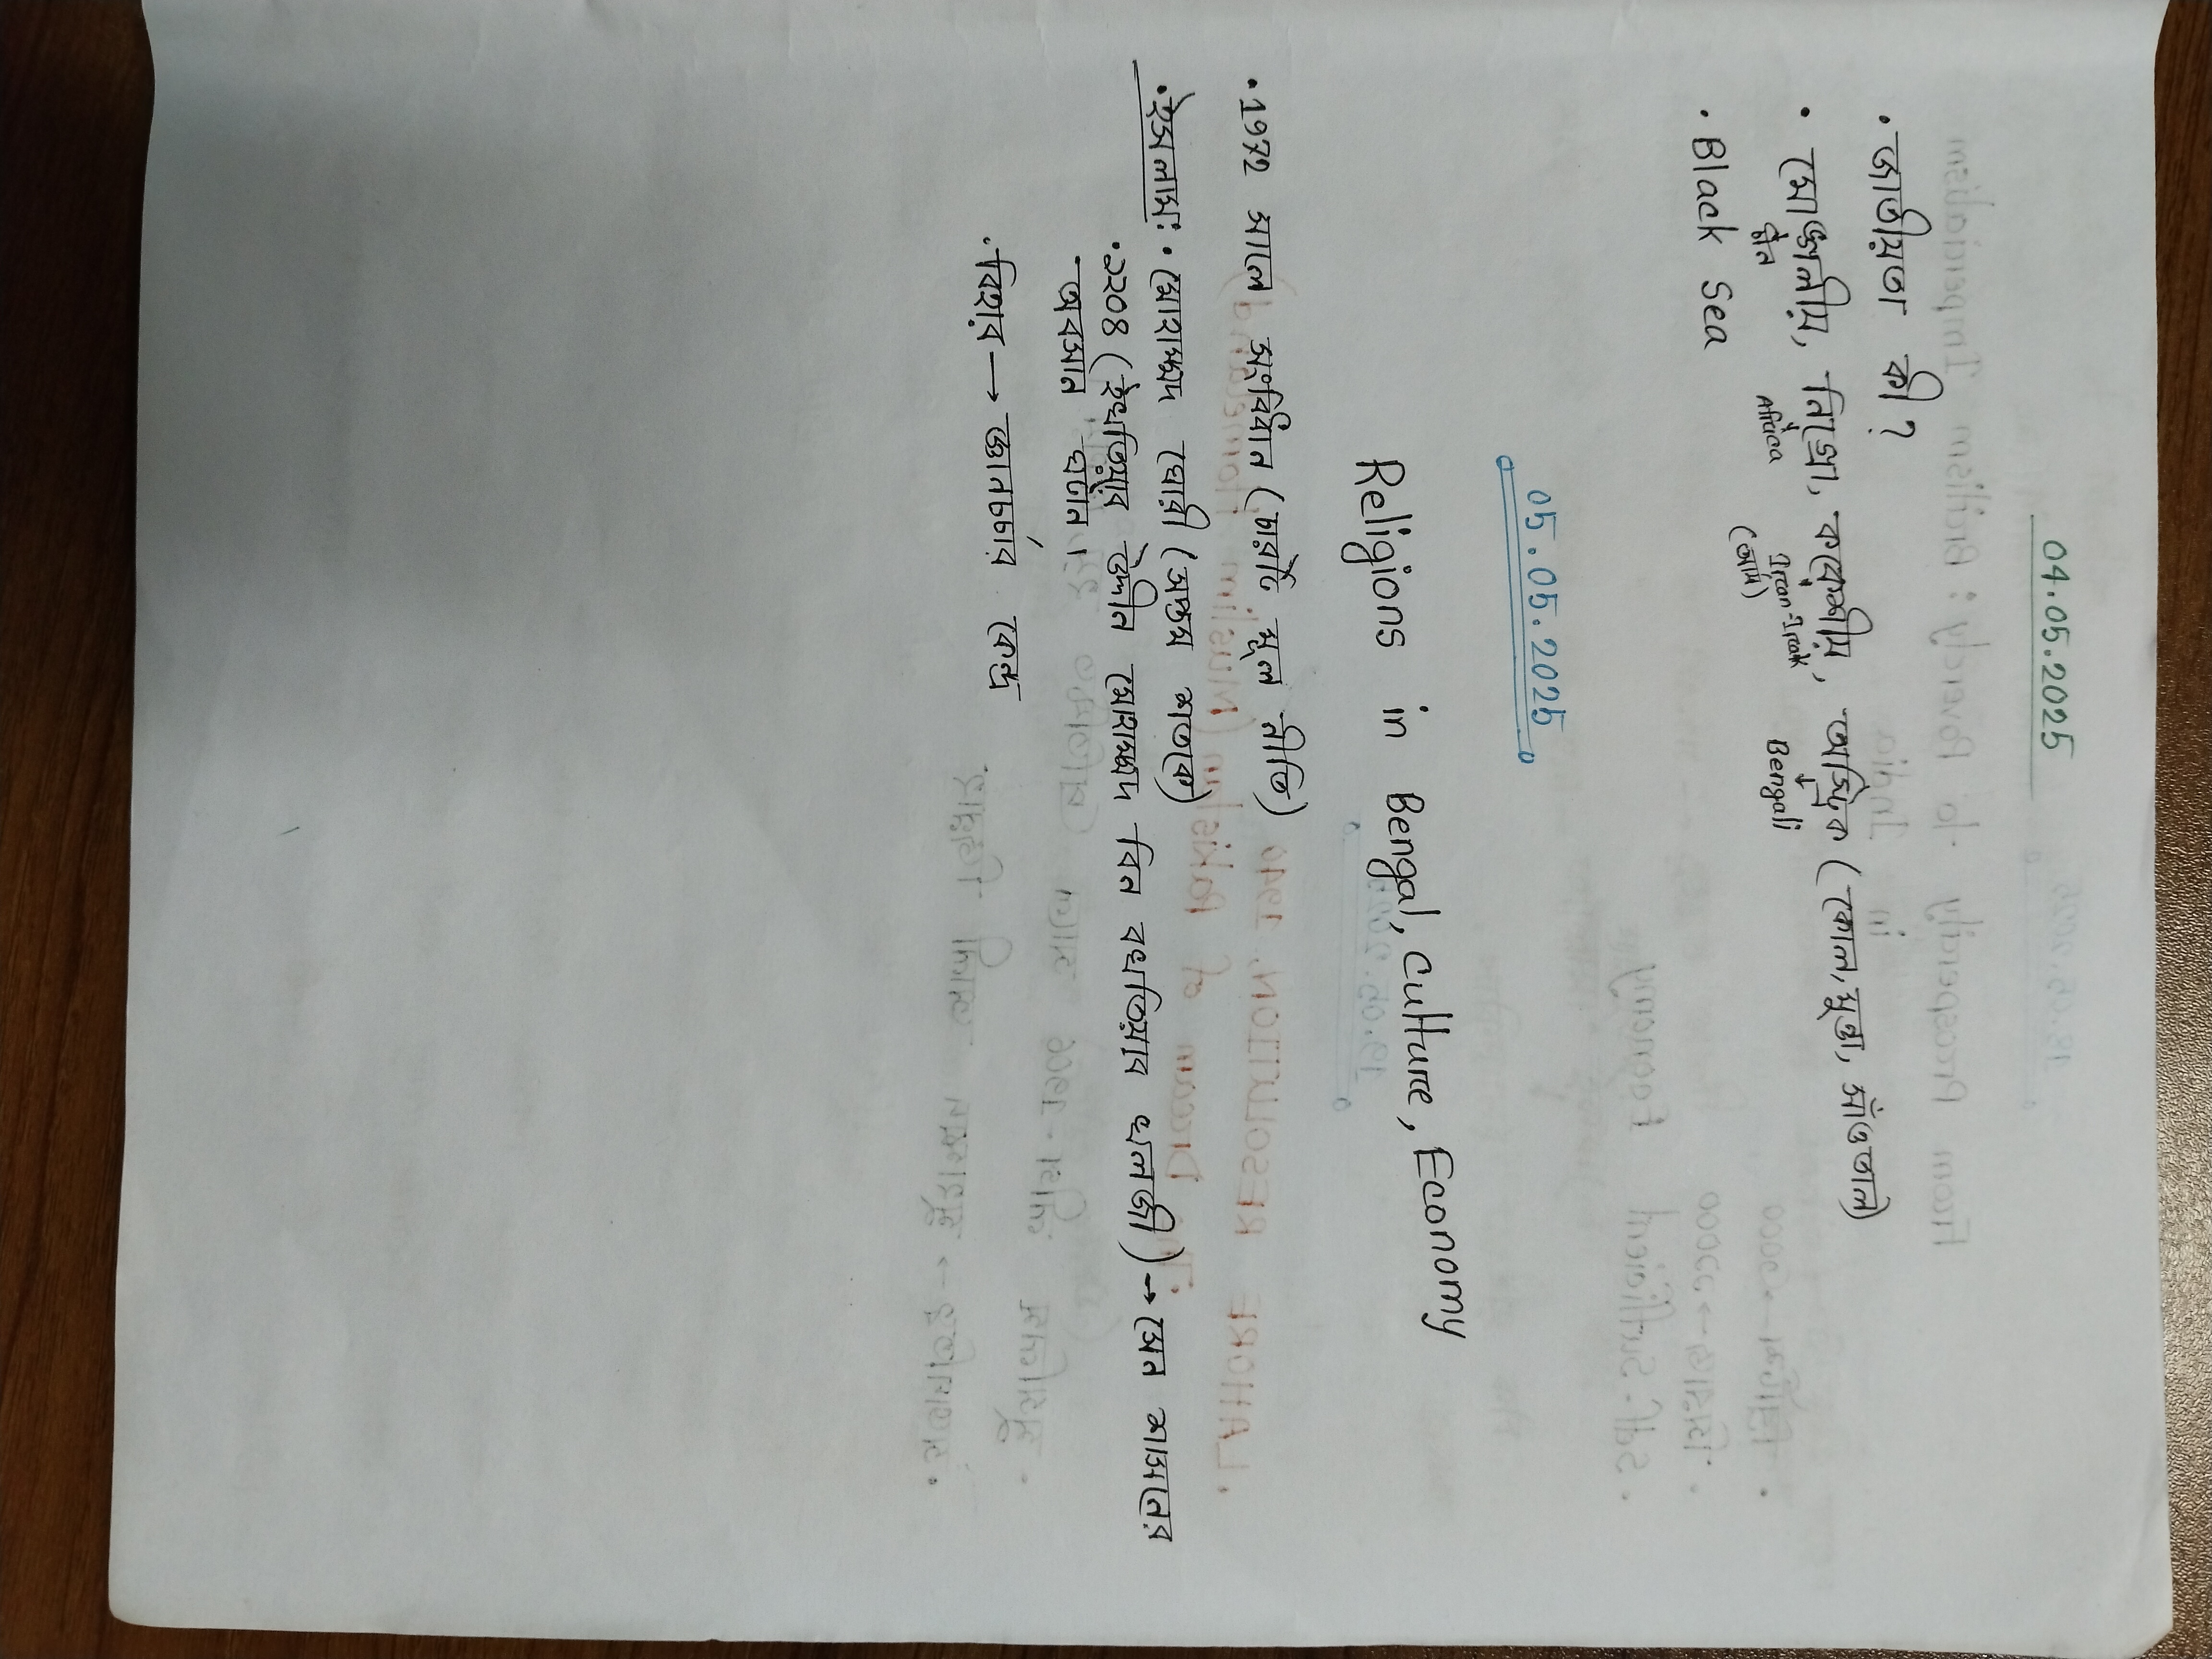 04.05.2025
• জাতীয়তা কী?
• মোঙ্গলীয়, নিগ্রো, ককেশীয়, অস্ট্রিক (কোল, মুন্ডা, সাঁওতাল)
চীন Africa Iran-Irak Bengali
(আর্য)
• Black Sea
05.05.2025
Religions in Bengal, Culture, Economy
• 1972 সালে সংবিধান (চারটি মূল নীতি)
• ইসলাম: • মোহাম্মদ ঘোরী (সপ্তম শতকে)
• ১২০৪ (ইখতিয়ার উদ্দীন মোহাম্মদ বিন বখতিয়ার খলজী) → সেন শাসনের
অবসান ঘটান।
• বিহার → জ্ঞানচর্চার কেন্দ্র